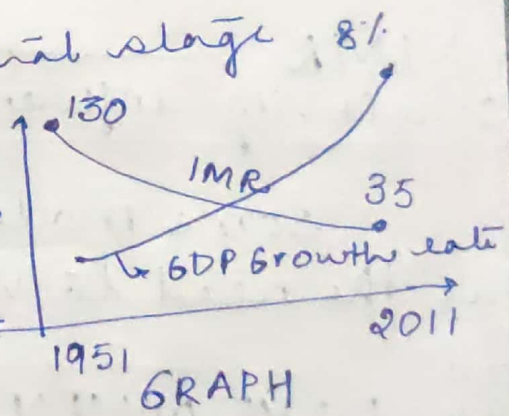 stage 8%
130
IMR
35
GDP Growth rate
1951
2011
GRAPH